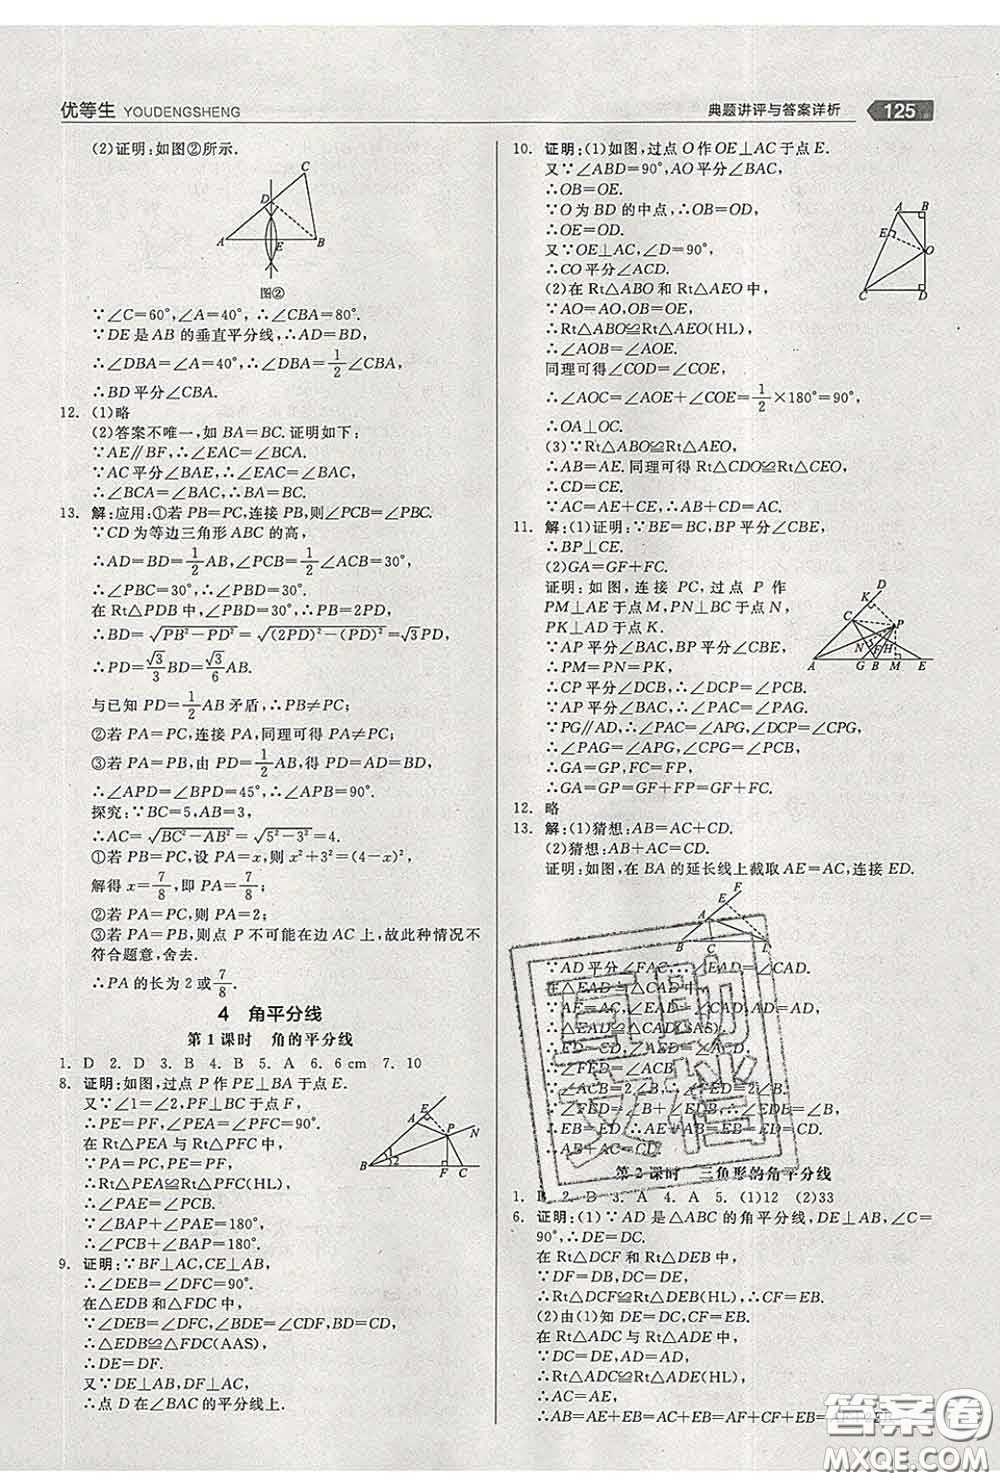 优等生 YOUDENGSHENG
典题讲评与答案详析 125
(2)证明:如图②所示.
C
D
A E B
图②
∵∠C=60°,∠A=40°,∴∠CBA=80°.
∵DE是AB的垂直平分线,∴AD=BD,
∴∠DBA=∠A=40°,∴∠DBA=1/2∠CBA,
∴BD平分∠CBA.
12. (1)略
(2)答案不唯一,如BA=BC.证明如下:
∵AE∥BF,∴∠EAC=∠BCA.
∵AC平分∠BAE,∴∠EAC=∠BAC,
∴∠BCA=∠BAC,∴BA=BC.
13. 解:应用:①若PB=PC,连接PB,则∠PCB=∠PBC.
∵CD为等边三角形ABC的高,
∴AD=BD=1/2AB,∠PCB=1/2∠ACB=30°,
∴∠PBC=30°,∴∠PBD=30°.
在Rt△PDB中,∠PBD=30°,∴PB=2PD,
∴BD=√(PB²-PD²)=√((2PD)²-(PD)²)=√3PD,
∴PD=√3/3BD=√3/6AB.
与已知PD=1/2AB矛盾,∴PB≠PC;
②若PA=PC,连接PA,同理可得PA≠PC;
③若PA=PB,由PD=1/2AB,得PD=AD=BD,
∴∠APD=∠BPD=45°,∴∠APB=90°.
探究:∵BC=5,AB=3,
∴AC=√(BC²-AB²)=√(5²-3²)=4.
①若PB=PC,设PA=x,则x²+3²=(4-x)²,
解得x=7/8,即PA=7/8;
②若PA=PC,则PA=2;
③若PA=PB,则点P不可能在边AC上,故此种情况不
符合题意,舍去.
∴PA的长为2或7/8.
4 角平分线
第1课时 角的平分线
1. D 2. D 3. B 4. B 5. A 6. 6 cm 7. 10
8. 证明:如图,过点P作PE⊥BA于点E.
又∵∠1=∠2,PF⊥BC于点F,
∴PE=PF,∠PEA=∠PFC=90°.
在Rt△PEA与Rt△PFC中,
∵PA=PC,PE=PF,
∴Rt△PEA≌Rt△PFC(HL),
∴∠PAE=∠PCB.
∵∠BAP+∠PAE=180°,
∴∠PCB+∠BAP=180°.
E
A P N
B 2 F C
9. 证明:∵BF⊥AC,CE⊥AB,
∴∠DEB=∠DFC=90°.
在△EDB和△FDC中,
∵∠DEB=∠DFC,∠BDE=∠FDC,BD=CD,
∴△EDB≌△FDC(AAS),
∴DE=DF.
又∵DE⊥AB,DF⊥AC,
∴点D在∠BAC的平分线上.
10. 证明:(1)如图,过点O作OE⊥AC于点E.
又∵∠ABD=90°,AO平分∠BAC,
∴OB=OE.
∵O为BD的中点,∴OB=OD,
∴OE=OD.
又∵OE⊥AC,∠D=90°,
∴CO平分∠ACD.
A B
E
O
C D
(2)在Rt△ABO和Rt△AEO中,
∵AO=AO,OB=OE,
∴Rt△ABO≌Rt△AEO(HL),
∴∠AOB=∠AOE.
同理可得∠COD=∠COE,
∴∠AOC=∠AOE+∠COE=1/2×180°=90°,
∴OA⊥OC.
(3)∵Rt△ABO≌Rt△AEO,
∴AB=AE.同理可得Rt△CDO≌Rt△CEO,
∴CD=CE.
∵AC=AE+CE,∴AB+CD=AC.
11. 解:(1)证明:∵BE=BC,BP平分∠CBE,
∴BP⊥CE.
(2)GA=GF+FC.
证明:如图,连接PC,过点P作
PM⊥AE于点M,PN⊥BC于点N,
PK⊥AD于点K.
∵AP平分∠BAC,BP平分∠CBE,
∴PM=PN=PK,
∴CP平分∠DCB,∴∠DCP=∠PCB.
∵AP平分∠BAC,∴∠PAC=∠PAG.
∵PG∥AD,∴∠PAC=∠APG,∠DCP=∠CPG,
∴∠PAG=∠APG,∠CPG=∠PCB,
∴GA=GP,FC=FP,
∴GA=GP=GF+FP=GF+FC.
D
K
C P
N F H
A G B M E
12. 略
13. 解:(1)猜想:AB=AC+CD.
(2)猜想:AB+AC=CD.
证明:如图,在BA的延长线上截取AE=AC,连接ED.
F
E
A
B C
∵AD平分∠FAC,∴∠EAD=∠CAD.
在△EAD与△CAD中,
∵AE=AC,∠EAD=∠CAD,AD=AD,
∴△EAD≌△CAD(SAS),
∴ED=CD,∠AED=∠ACD,
∴∠FED=∠ACB.
∵∠ACB=2∠B,∴∠FED=2∠B.
∵∠FED=∠B+∠EDB,∴∠EDB=∠B,
∴EB=ED,∴AB+AE=EB=ED=CD,
∴AB+AC=CD.
第2课时 三角形的角平分线
1. B 2. D 3. A 4. A 5. (1)12 (2)33
6. 证明:(1)∵AD是△ABC的角平分线,DE⊥AB,∠C=
90°,∴DC=DE.
在Rt△DCF和Rt△DEB中,
∵DF=DB,DC=DE,
∴Rt△DCF≌Rt△DEB(HL),∴CF=EB.
(2)由(1)知DE=DC,CF=EB.
在Rt△ADC与Rt△ADE中,
∵DC=DE,AD=AD,
∴Rt△ADC≌Rt△ADE(HL),
∴AC=AE,
∴AB=AE+EB=AC+EB=AF+CF+EB=AF+2EB.
直助文档
答案圈
MXQE.COM